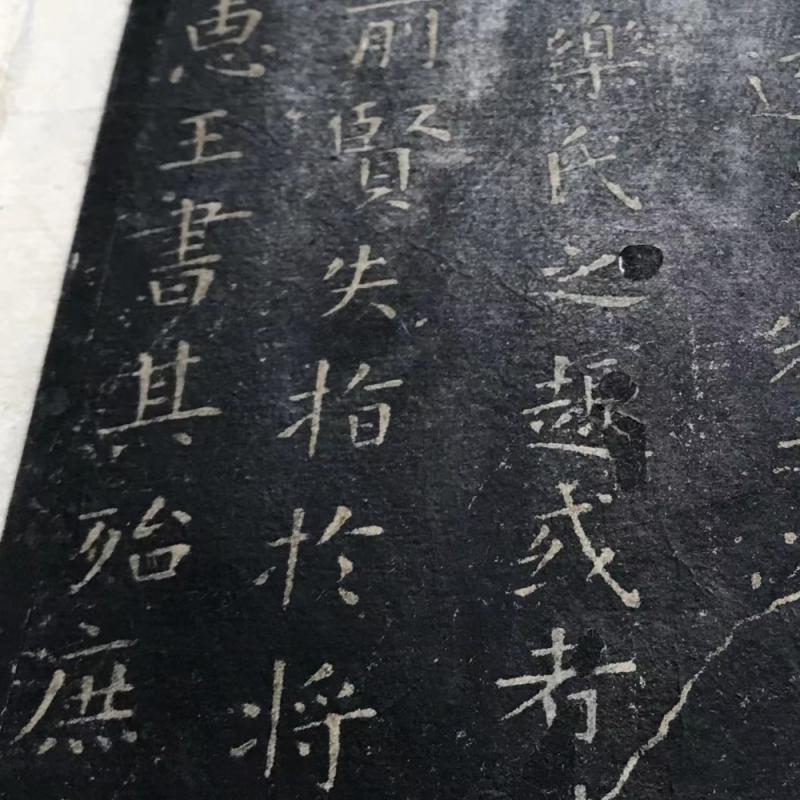 樂氏之趣或者
前賢失指於將
惠王書其殆庶